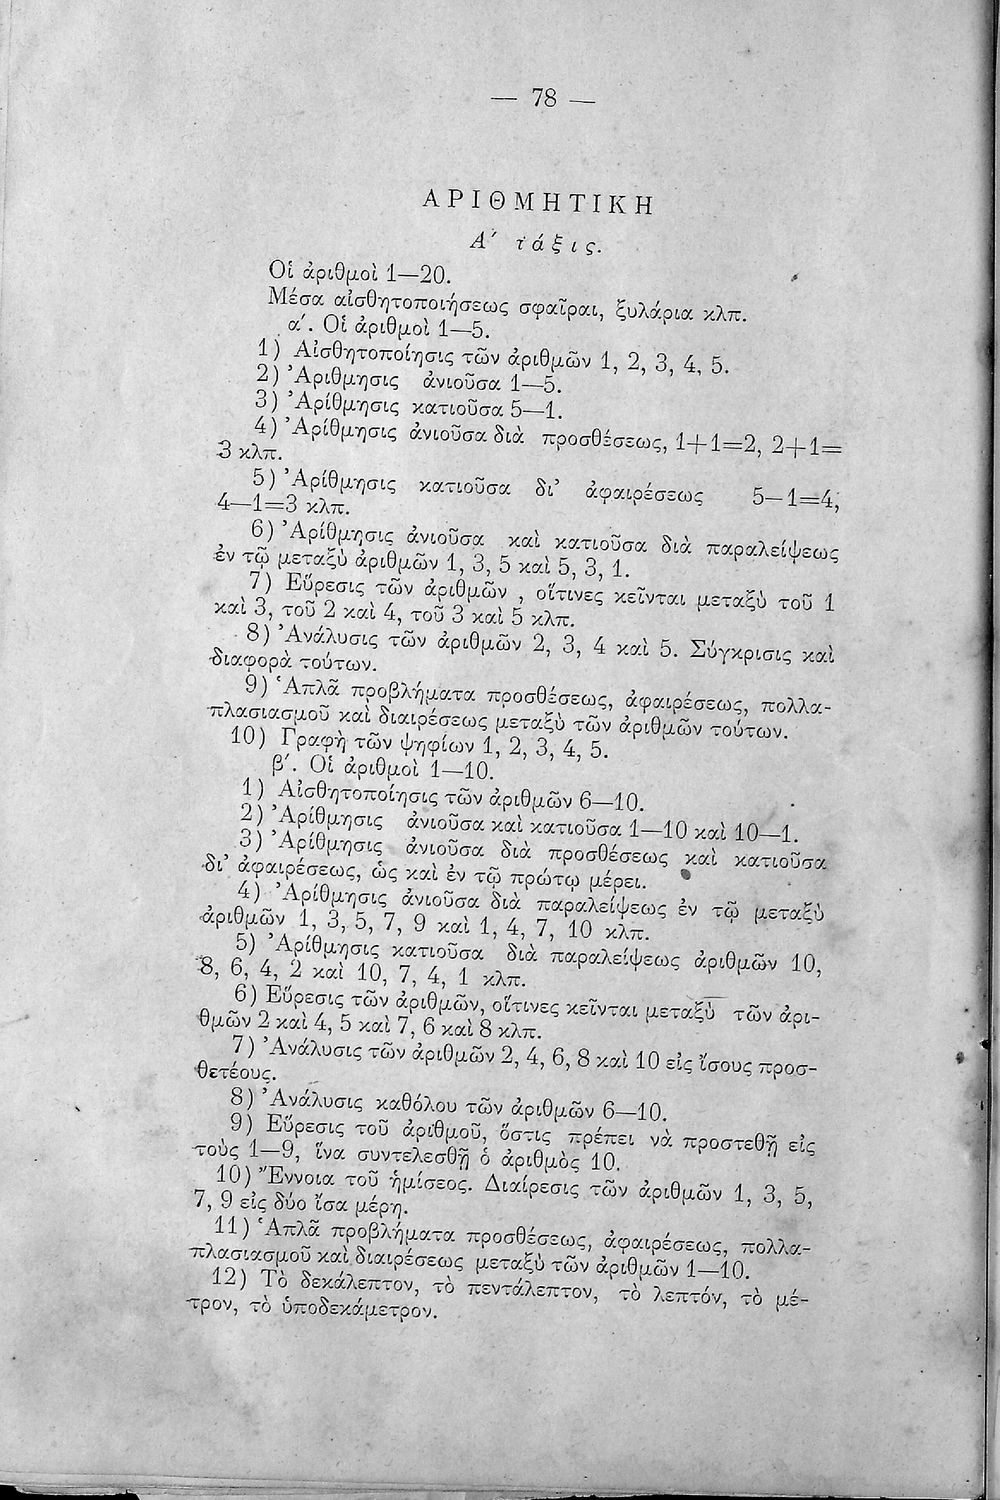 — 78 —
ΑΡΙΘΜΗΤΙΚΗ
Α΄ τάξις.
Οἱ ἀριθμοὶ 1—20.
Μέσα αἰσθητοποιήσεως σφαῖραι, ξυλάρια κλπ.
α΄. Οἱ ἀριθμοὶ 1—5.
1) Αἰσθητοποίησις τῶν ἀριθμῶν 1, 2, 3, 4, 5.
2) Ἀρίθμησις ἀνιοῦσα 1—5.
3) Ἀρίθμησις κατιοῦσα 5—1.
4) Ἀρίθμησις ἀνιοῦσα διὰ προσθέσεως, 1+1=2, 2+1=
3 κλπ.
5) Ἀρίθμησις κατιοῦσα δι’ ἀφαιρέσεως 5—1=4,
4—1=3 κλπ.
6) Ἀρίθμησις ἀνιοῦσα καὶ κατιοῦσα διὰ παραλείψεως
ἐν τῷ μεταξὺ ἀριθμῶν 1, 3, 5 καὶ 5, 3, 1.
7) Εὕρεσις τῶν ἀριθμῶν , οἵτινες κεῖνται μεταξὺ τοῦ 1
καὶ 3, τοῦ 2 καὶ 4, τοῦ 3 καὶ 5 κλπ.
8) Ἀνάλυσις τῶν ἀριθμῶν 2, 3, 4 καὶ 5. Σύγκρισις καὶ
διαφορὰ τούτων.
9) Ἁπλᾶ προβλήματα προσθέσεως, ἀφαιρέσεως, πολλα-
πλασιασμοῦ καὶ διαιρέσεως μεταξὺ τῶν ἀριθμῶν τούτων.
10) Γραφὴ τῶν ψηφίων 1, 2, 3, 4, 5.
β΄. Οἱ ἀριθμοὶ 1—10.
1) Αἰσθητοποίησις τῶν ἀριθμῶν 6—10.
2) Ἀρίθμησις ἀνιοῦσα καὶ κατιοῦσα 1—10 καὶ 10—1.
3) Ἀρίθμησις ἀνιοῦσα διὰ προσθέσεως καὶ κατιοῦσα
δι’ ἀφαιρέσεως, ὡς καὶ ἐν τῷ πρώτῳ μέρει.
4) Ἀρίθμησις ἀνιοῦσα διὰ παραλείψεως ἐν τῷ μεταξὺ
ἀριθμῶν 1, 3, 5, 7, 9 καὶ 1, 4, 7, 10 κλπ.
5) Ἀρίθμησις κατιοῦσα διὰ παραλείψεως ἀριθμῶν 10,
8, 6, 4, 2 καὶ 10, 7, 4, 1 κλπ.
6) Εὕρεσις τῶν ἀριθμῶν, οἵτινες κεῖνται μεταξὺ τῶν ἀρι-
θμῶν 2 καὶ 4, 5 καὶ 7, 6 καὶ 8 κλπ.
7) Ἀνάλυσις τῶν ἀριθμῶν 2, 4, 6, 8 καὶ 10 εἰς ἴσους προσ-
θετέους.
8) Ἀνάλυσις καθόλου τῶν ἀριθμῶν 6—10.
9) Εὕρεσις τοῦ ἀριθμοῦ, ὅστις πρέπει νὰ προστεθῇ εἰς
τοὺς 1—9, ἵνα συντελεσθῇ ὁ ἀριθμὸς 10.
10) Ἔννοια τοῦ ἡμίσεος. Διαίρεσις τῶν ἀριθμῶν 1, 3, 5,
7, 9 εἰς δύο ἴσα μέρη.
11) Ἁπλᾶ προβλήματα προσθέσεως, ἀφαιρέσεως, πολλα-
πλασιασμοῦ καὶ διαιρέσεως μεταξὺ τῶν ἀριθμῶν 1—10.
12) Τὸ δεκάλεπτον, τὸ πεντάλεπτον, τὸ λεπτόν, τὸ μέ-
τρον, τὸ ὑποδεκάμετρον.